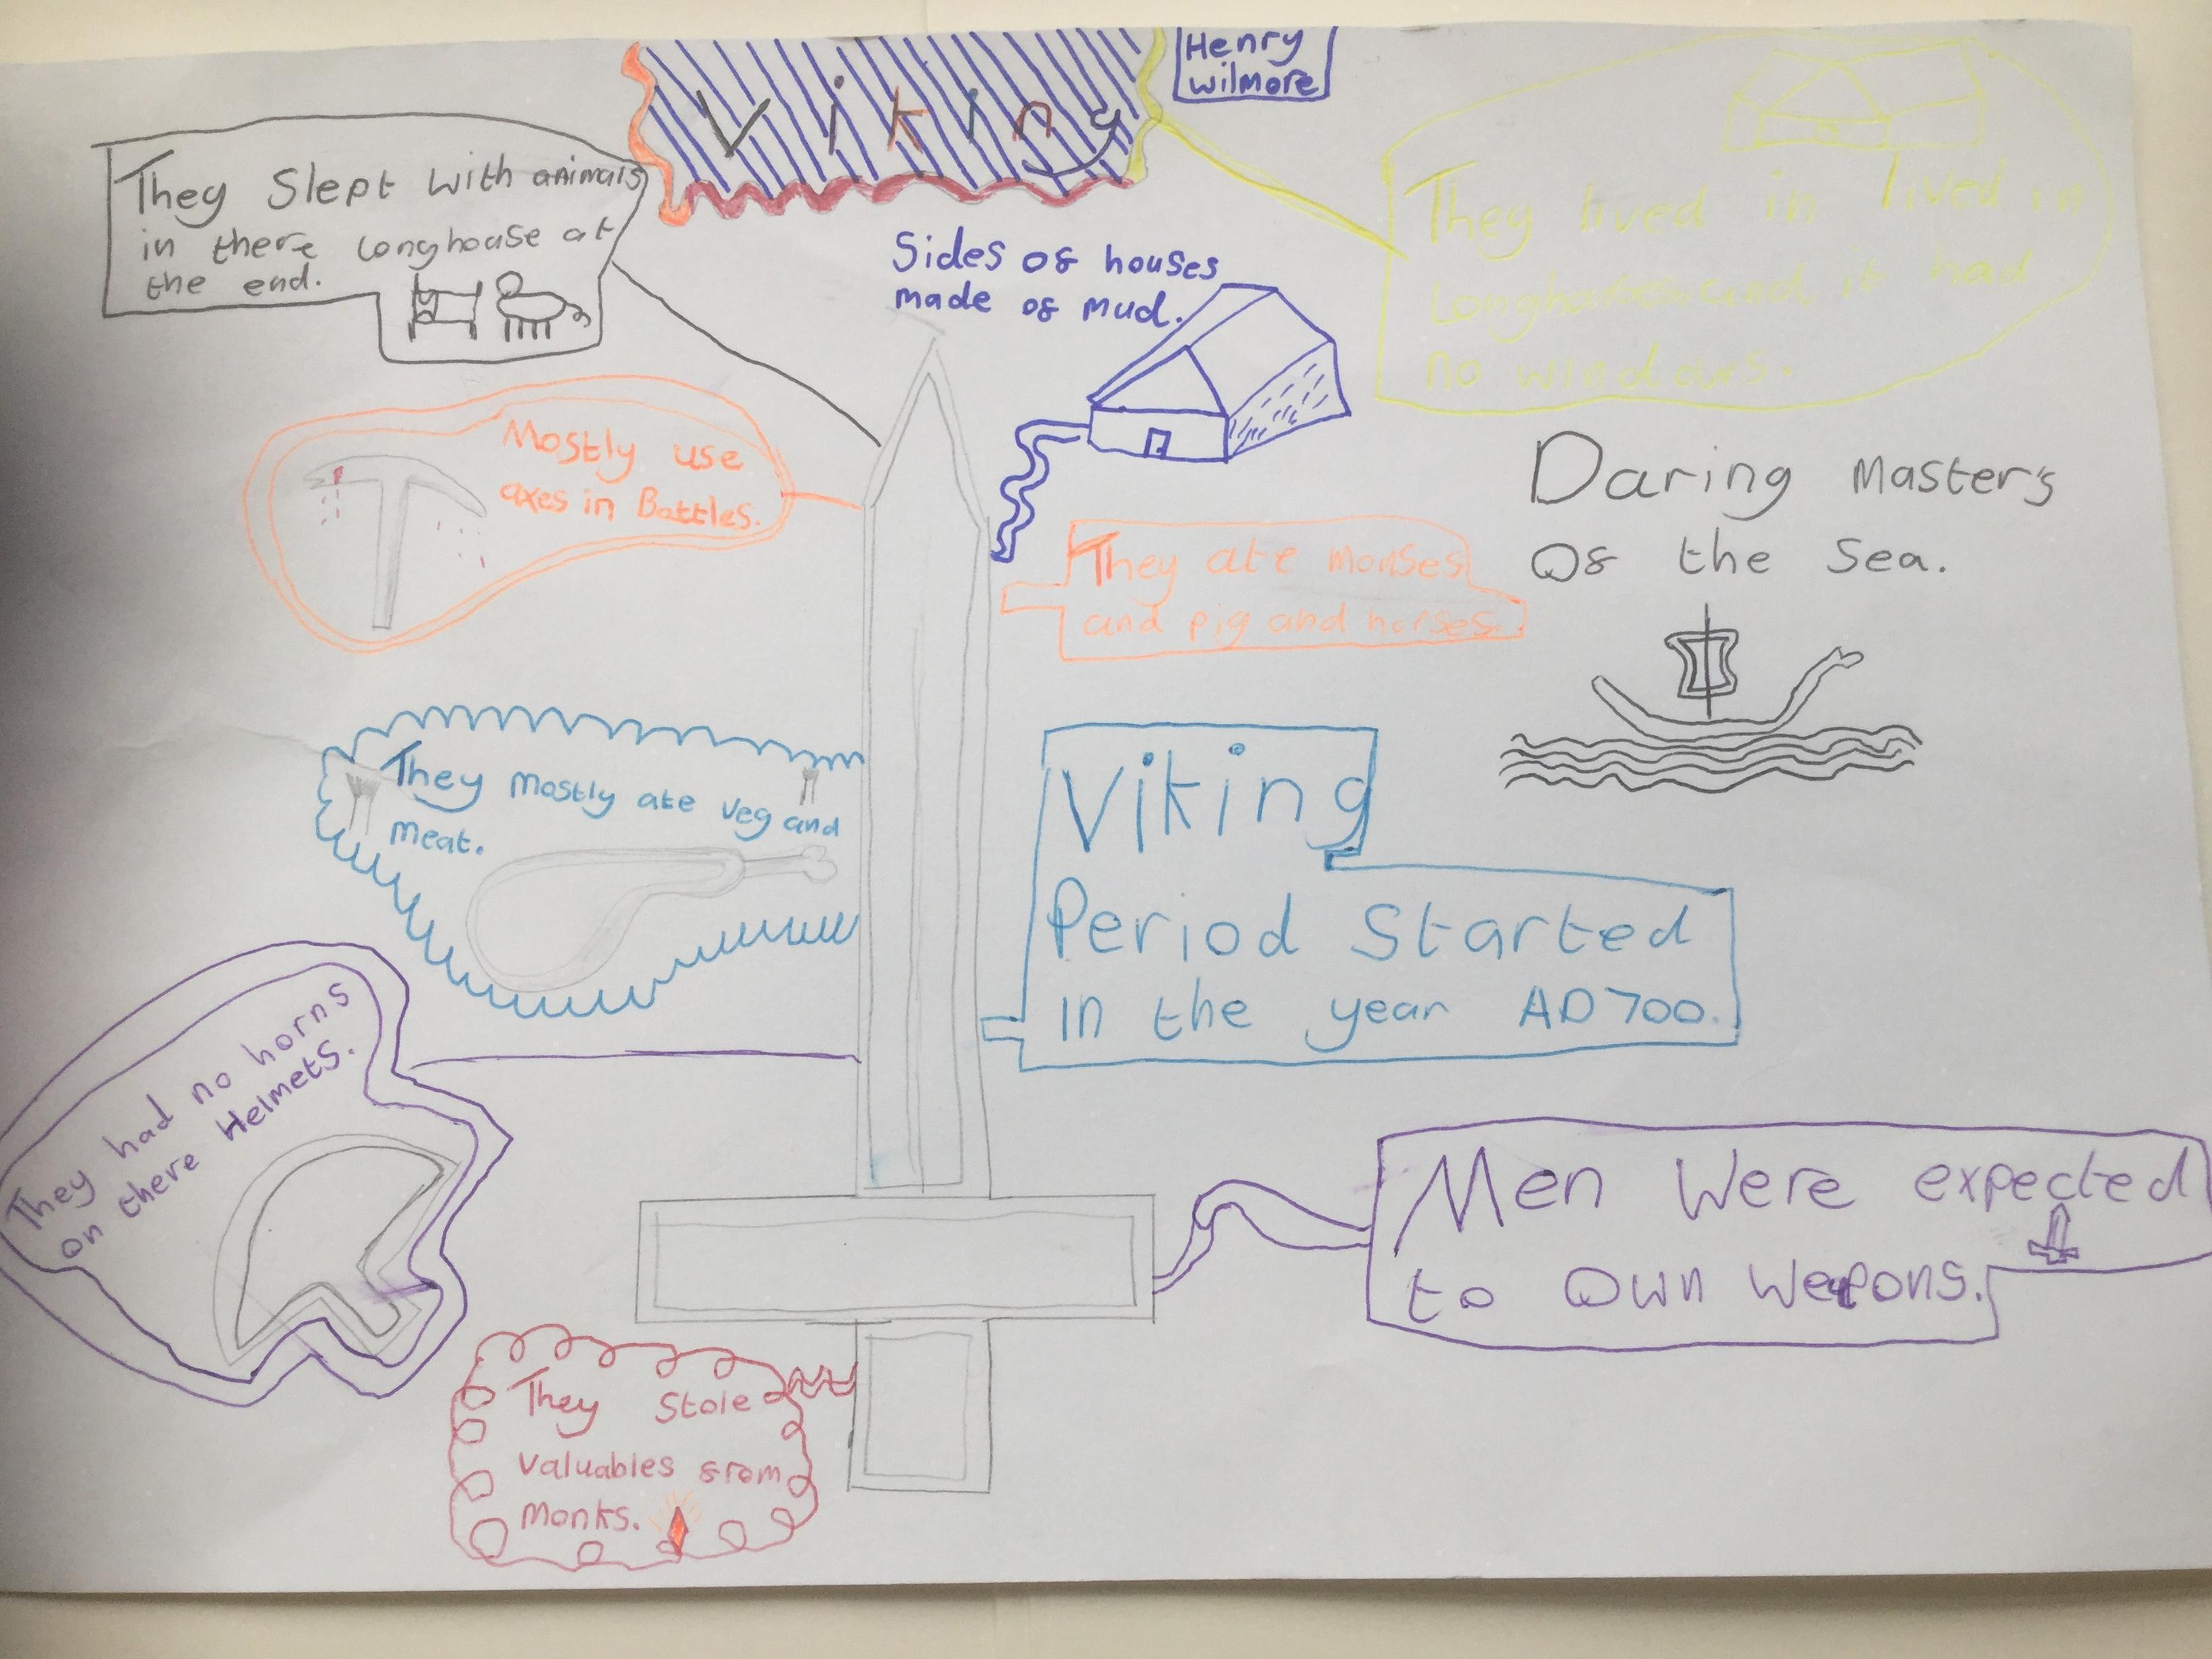 Viking
Henry
Wilmore
They Slept with animals
in there longhouse at
the end.
Sides of houses
made of mud.
They lived in lived in
and it had
no windows.
Mostly use
axes in Battles.
Daring Master's
Of the Sea.
They ate
and pig and horses.
They mostly ate veg and
meat.
Viking
Period Started
in the year AD 700.
They had no horns
on there Helmets.
Men Were expected
to Own Weapons.
They Stole
valuables from
Monks.